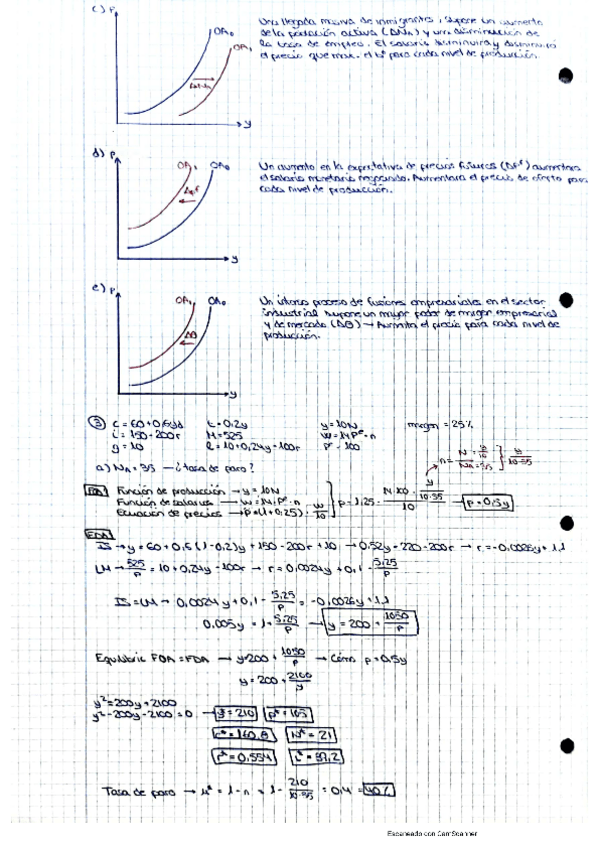 c) P
OA₀
OA₁
Una llegada masiva de inmigrantes, supone un aumento
de la población activa (ΔNₐ) y una disminución de
la tasa de empleo. El salario disminuirá y disminuirá
el precio que max. el bº para cada nivel de producción.
y
d) P
OA₁ OA₀
Un aumento en la expectativa de precios futuros (ΔPᵉ) aumentará
el salario monetario negociado. Aumentará el precio de oferta para
cada nivel de producción.
ΔPᵉ
y
e) P
OA₁ OA₀
Un intenso proceso de fusiones empresariales en el sector
industrial supone un mayor poder de margen empresarial
y de mercado (ΔΘ) → Aumenta el precio para cada nivel de
producción.
ΔΘ
y
③ C = 60 + 0,6yd t = 0,2y y = 10N margen = 25%
i = 150 - 200r M = 525 W = 14Pᵉ·n
g = 10 L = 10 + 0,24y - 100r Pᵉ = 100
a) Nₐ = 35 → ¿tasa de paro?
Función de producción → y = 10N
Función de salarios → W = 14·Pᵉ·n
Ecuación de precios → P = (1 + 0,25) · W/10
→ P = 0,5y
IS → y = 60 + 0,6 (1 - 0,2)y + 150 - 200r + 10 → 0,52y = 220 - 200r → r = -0,0026y + 1,1
LM → 525/P = 10 + 0,24y - 100r → r = 0,0024y + 0,1 - 5,25/P
IS = LM → 0,0024y + 0,1 - 5,25/P = -0,0026y + 1,1
0,005y = 1 + 5,25/P → y = 200 + 1050/P
Equilibrio FOA = FDA → y = 200 + 1050/P → Cómo P = 0,5y
y = 200 + 2100/y
y² = 200y + 2100
y² - 200y - 2100 = 0 → y* = 210 P* = 105
C* = 160,8 N* = 21
r* = 0,554 i* = 39,2
Tasa de paro → u* = 1 - n = 1 - 210/10·35 = 0,4 = 40%
Escaneado con CamScanner